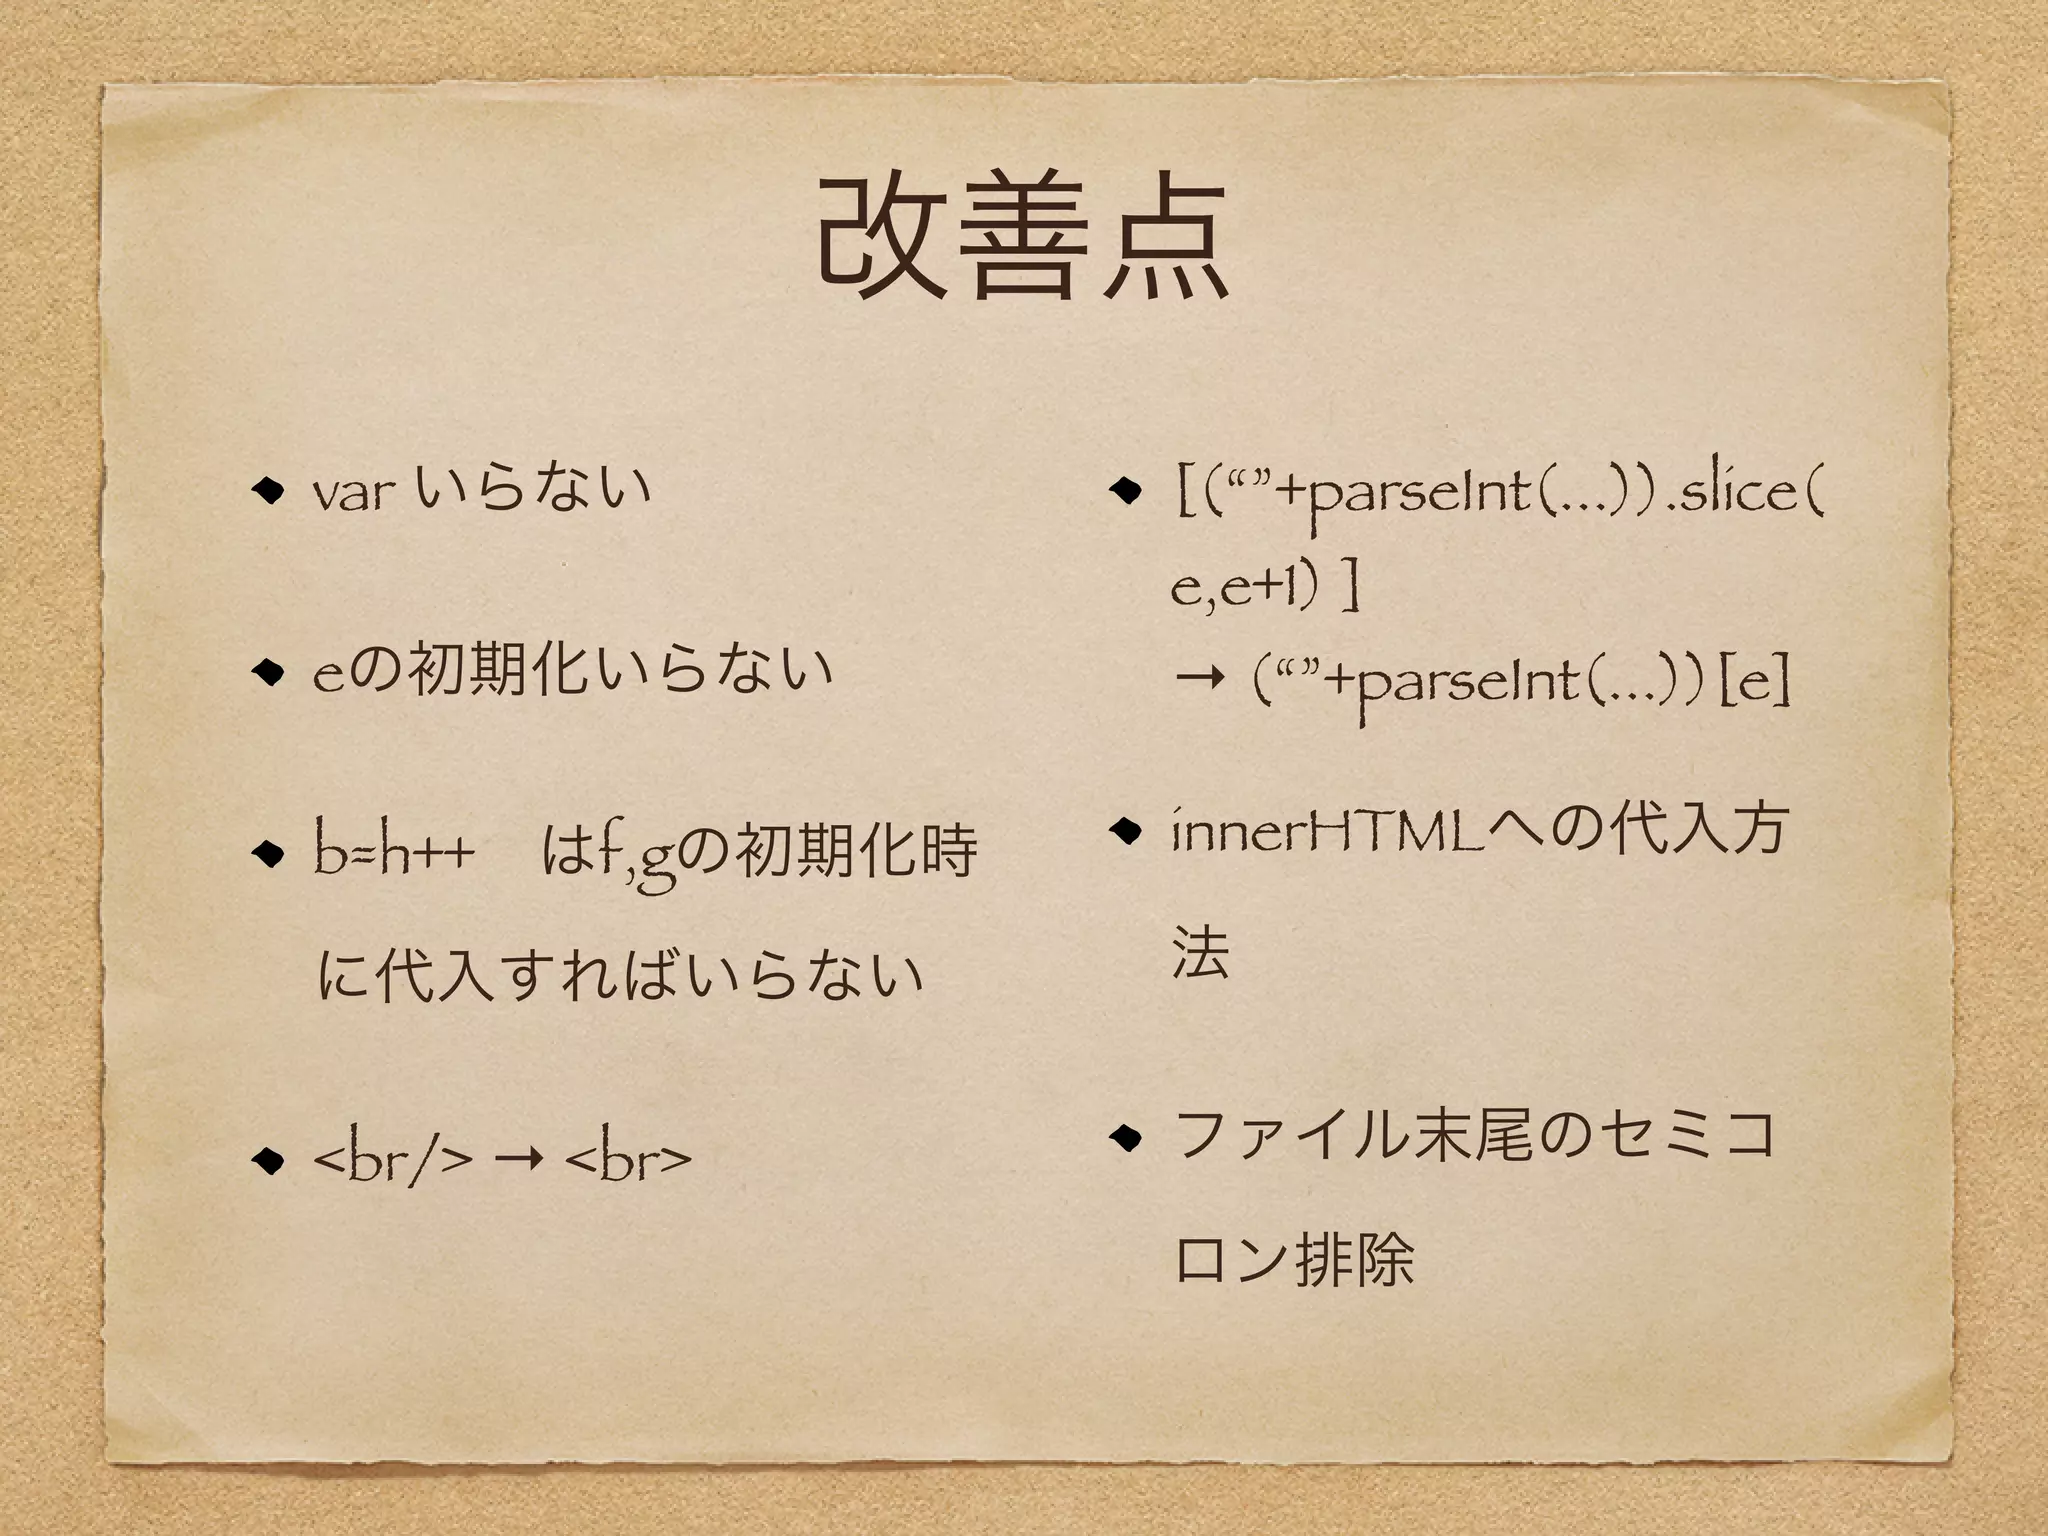 改善点
var いらない
eの初期化いらない
b=h++　はf,gの初期化時
に代入すればいらない
<br/> → <br>
[(“”+parseInt(...)).slice(
e,e+1) ]
→ (“”+parseInt(...))[e]
innerHTMLへの代入方
法
ファイル末尾のセミコ
ロン排除